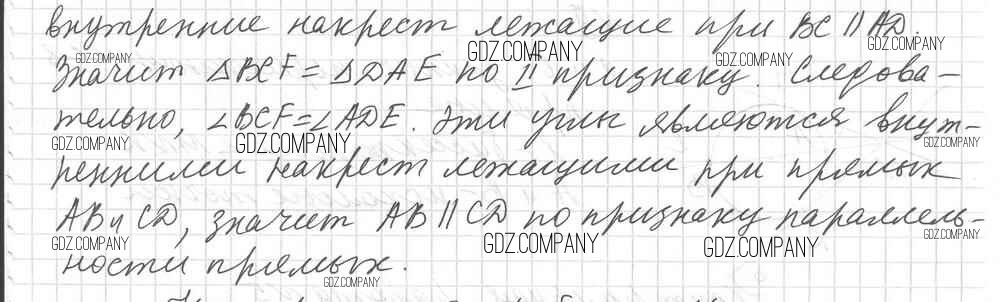 внутренние накрест лежащие при BC || AD.
Значит △BCF = △DAE по II признаку. Следова-
тельно, ∠BCF=∠ADE. Эти углы являются внут-
ренними накрест лежащими при прямых
AB и CD, значит AB || CD по признаку параллель-
ности прямых.
GDZ.COMPANY
GDZ.COMPANY
GDZ.COMPANY
GDZ.COMPANY
GDZ.COMPANY
GDZ.COMPANY
GDZ.COMPANY
GDZ.COMPANY
GDZ.COMPANY
GDZ.COMPANY
GDZ.COMPANY
GDZ.COMPANY